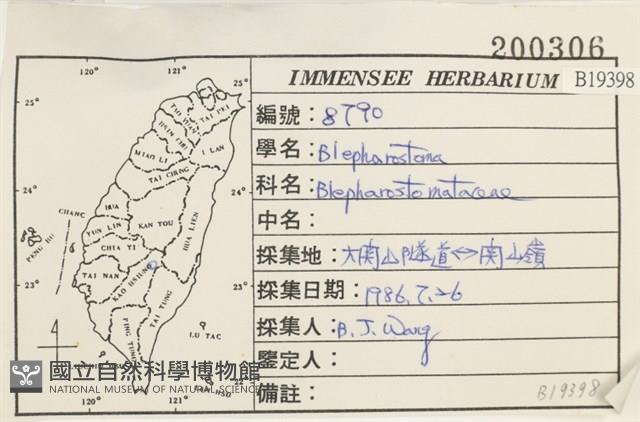 200306
IMMENSEE HERBARIUM B19398
編號：8790
學名：Blepharostoma
科名：Blepharostomataceae
中名：
採集地：大関山隧道↔関山嶺
採集日期：1986.7.26
採集人：B.J.Wang
鑒定人：
備註：
B19398
120° 121°
25° 25°
TAO YUAN TAI PEI
HSIN CHU
I LAN
MIAO LI
TAI CHUNG
24° 24°
CHANG HUA
NAN TOU
HUA LIEN
YUN LIN
PENG HU
CHIA YI
TAI NAN
KAO HSIUNG
23° 23°
TAI TUNG
PING TUNG
LU TAO
國立自然科學博物館
NATIONAL MUSEUM OF NATURAL SCIENCE
22°
120° 121°